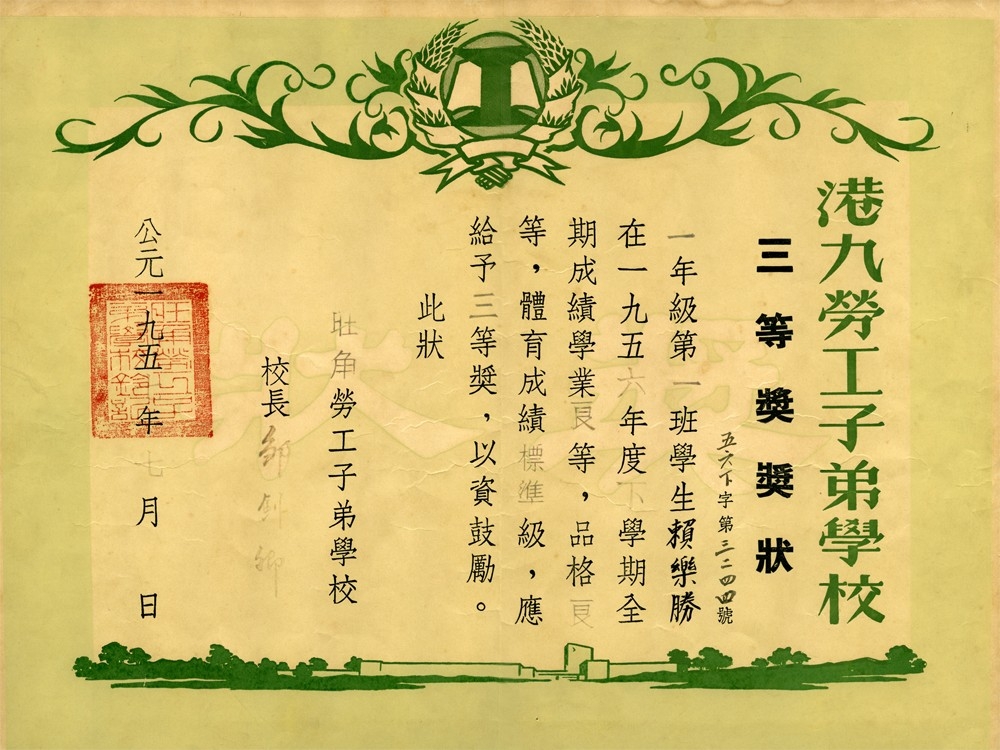 港九勞工子弟學校
三等獎獎狀
五六下字第三二四四號
一年級第一班學生賴樂勝
在一九五六年度下學期全
期成績學業良等，品格良
等，體育成績標準級，應
給予三等獎，以資鼓勵。
此狀
旺角勞工子弟學校
校長
公元一九五 年七月 日
獎狀